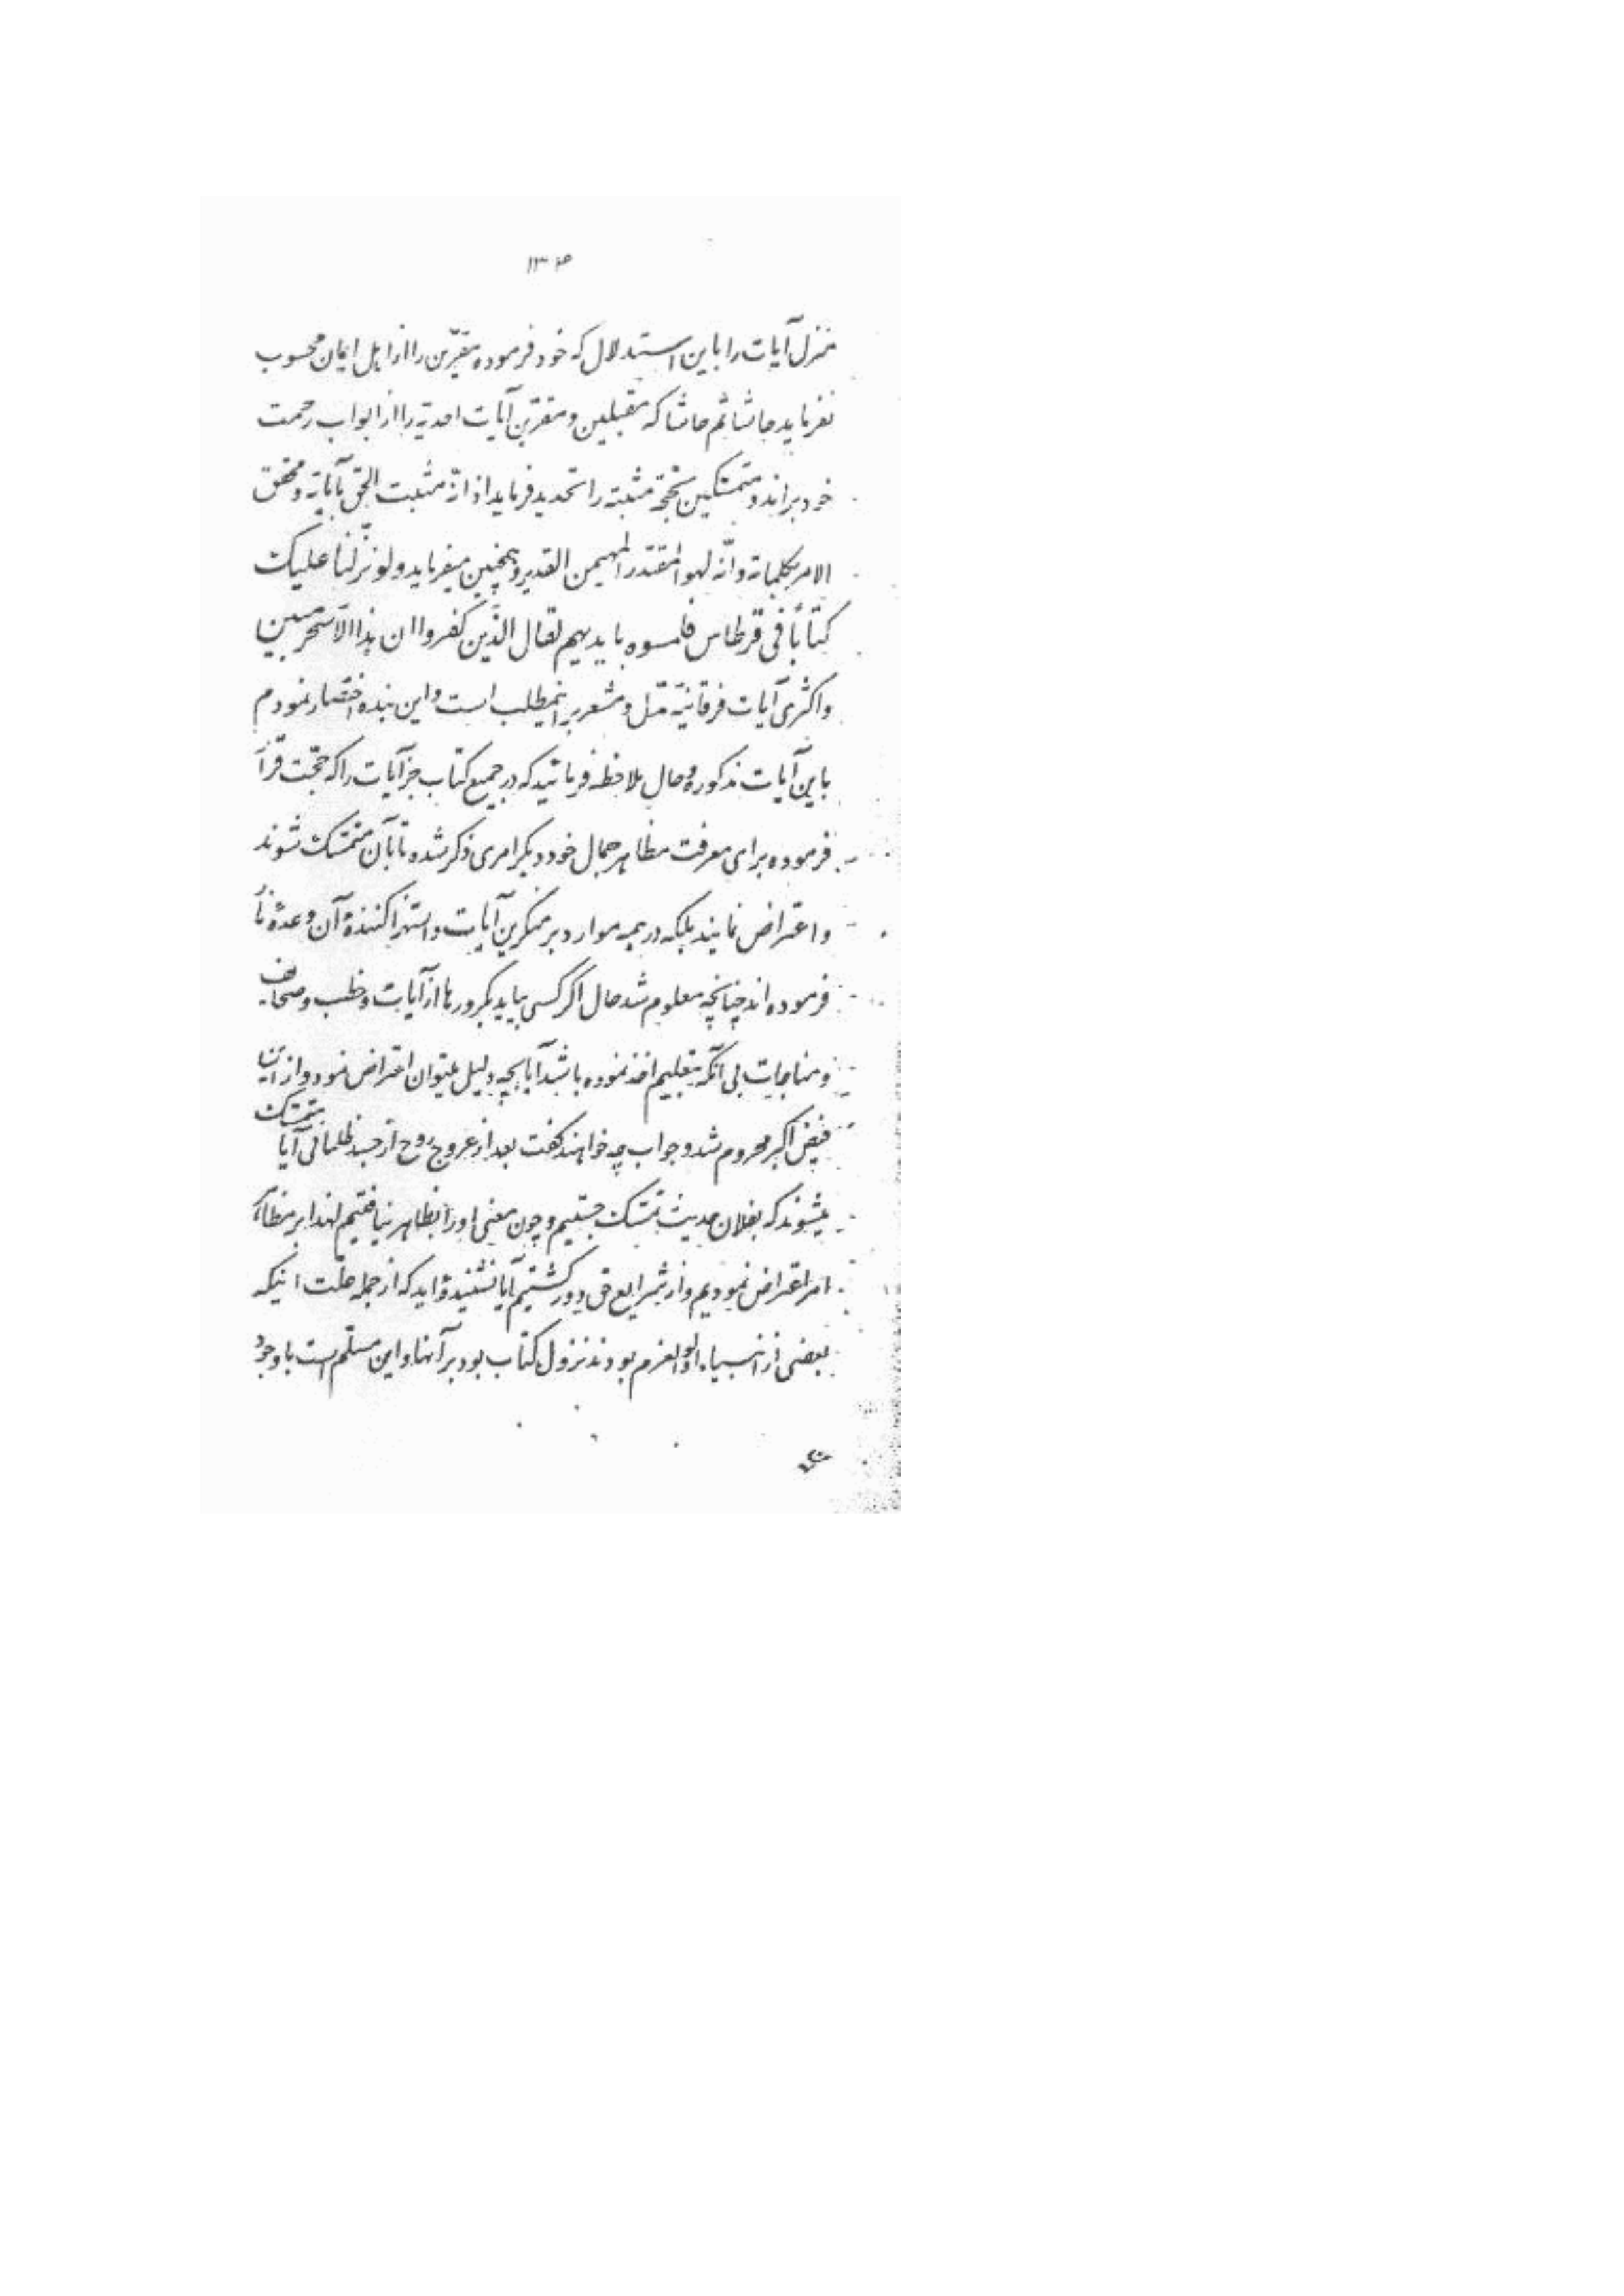 ۱۳۶
منزل آیات را باین استدلال که خود فرموده مقرّین را از اهل ایمان محسوب
نفرماید حاشا ثم حاشا که مقبلین و مقرّین آیات احدیّه را از ابواب رحمت
خود براند و متمسّکین بحجّة مثبته را تحدید فرماید اذ انّه مثبت الحقّ بآیاته و محقق
الامر بکلماته و انّه لهو المقتدر المهیمن القدیر و همچنین میفرماید ولو نزّلنا علیک
کتاباً فی قرطاس فلمسوه بایدیهم لقال الّذین کفروا ان هذا الّا سحر مبین
و اکثری آیات فرقانیّه مدلّ و مشعر بر اینمطلب است و این بنده اختصار نمودم
باین آیات مذکوره و حال ملاحظه فرمائید که در جمیع کتاب جز آیات را که حجّت قرار
فرموده برای معرفت مظاهر جمال خود دیگر امری ذکر شده تا بآن متمسّک شوند
و اعتراض نمایند بلکه در همه موارد بر منکرین آیات و استهزا کنندهٔ آن وعدهٔ نار
فرموده اند چنانچه معلوم شد حال اگر کسی بیاید بکرورها از آیات و خطب و صحائف
و مناجات بی آنکه بتعلیم اخذ نموده باشد آیا بچه دلیل میتوان اعتراض نمود و از این
فیض اکبر محروم شد و جواب چه خواهند گفت بعد از عروج روح از جسد ظلمانی آیا متمسّک
میشوند که بفلان حدیث تمسّک جستیم و چون معنی او را بظاهر نیافتیم لهذا بر مظاهر
امر اعتراض نمودیم و از شرایع حق دور گشتیم آیا نشنیده اید که از جمله علّت اینکه
بعضی از انبیاء اولوالعزم بودند نزول کتاب بود بر آنها و این مسلّم است با وجود